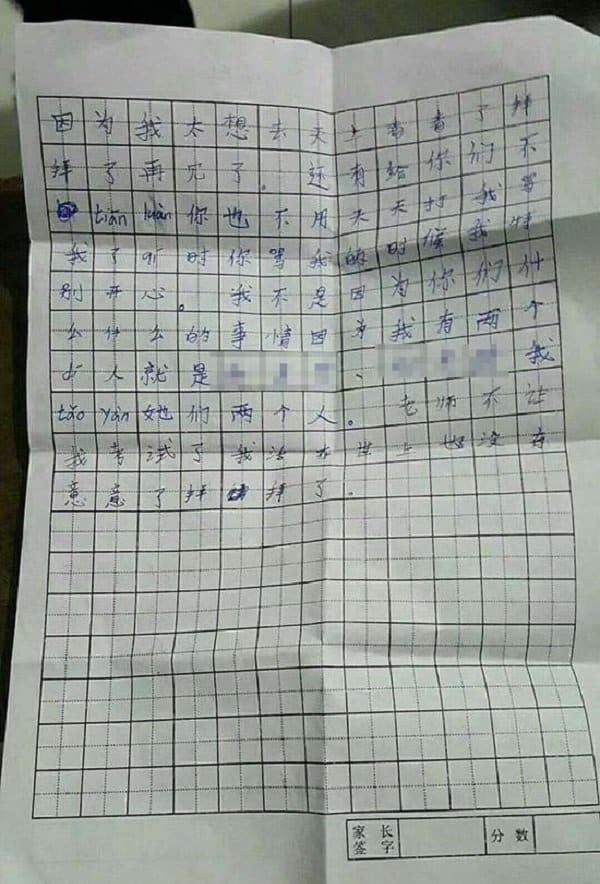 因为我太想去天上看看了拜
拜了再见了。还有给你们不
tiān luàn你也不用天天打我骂
我了听时你骂我的时候我特
别开心。我不是因为你们什
么什么的事情因为我有两个
人就是、我
tǎo yàn她们两个人。老师不让
我考试了我活在世上也没有
意意了拜拜了。
家长
签字
分数